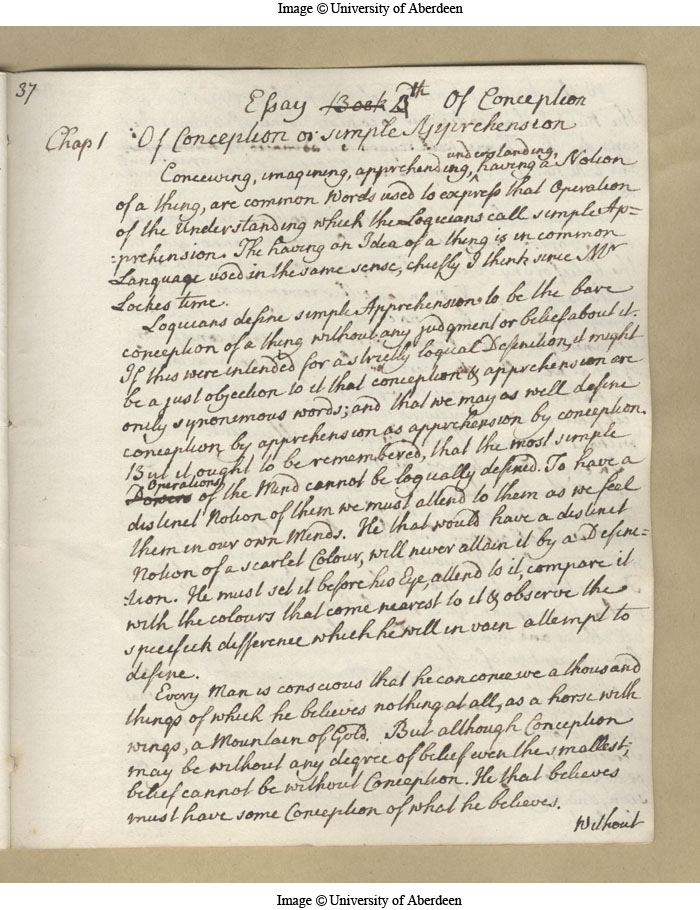 Image © University of Aberdeen
37
Essay Book 4th Of Conception
Chap 1 Of Conception or simple Apprehension
understanding,
Conceiving, imagining, apprehending, having a Notion
of a thing, are common Words used to express that Operation
of the Understanding which the Logicians call simple Ap=
=prehension. The having an Idea of a thing is in common
Language used in the same sense, chiefly I think since Mr
Lockes time.
Logicians define simple Apprehension to be the bare
conception of a thing without any judgment or belief about it.
If this were intended for a strictly logical Definition, it might
be a just objection to it that conception & apprehension are
only synonemous words; and that we may as well define
conception by apprehension as apprehension by conception.
But it ought to be remembered, that the most simple
Operations
Powers of the Mind cannot be logically defined. To have a
distinct Notion of them we must attend to them as we feel
them in our own Minds. He that would have a distinct
Notion of a scarlet Colour, will never attain it by a Defini=
=tion. He must set it before his Eye, attend to it compare it
with the colours that come nearest to it & observe the
specifick difference which he will in vain attempt to
define.
Every Man is conscious that he can conceive a thousand
things of which he believes nothing at all, as a horse with
wings, a Mountain of Gold. But although Conception
may be without any degree of belief even the smallest;
belief cannot be without Conception. He that believes
must have some Conception of what he believes.
Without
Image © University of Aberdeen